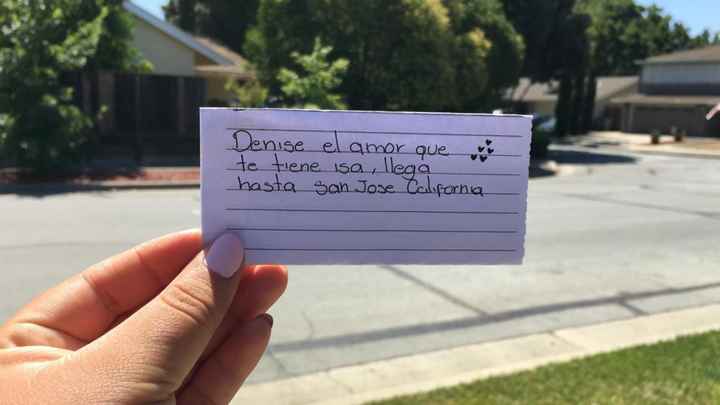 Denise el amor que
te tiene isa, llega
hasta San Jose California